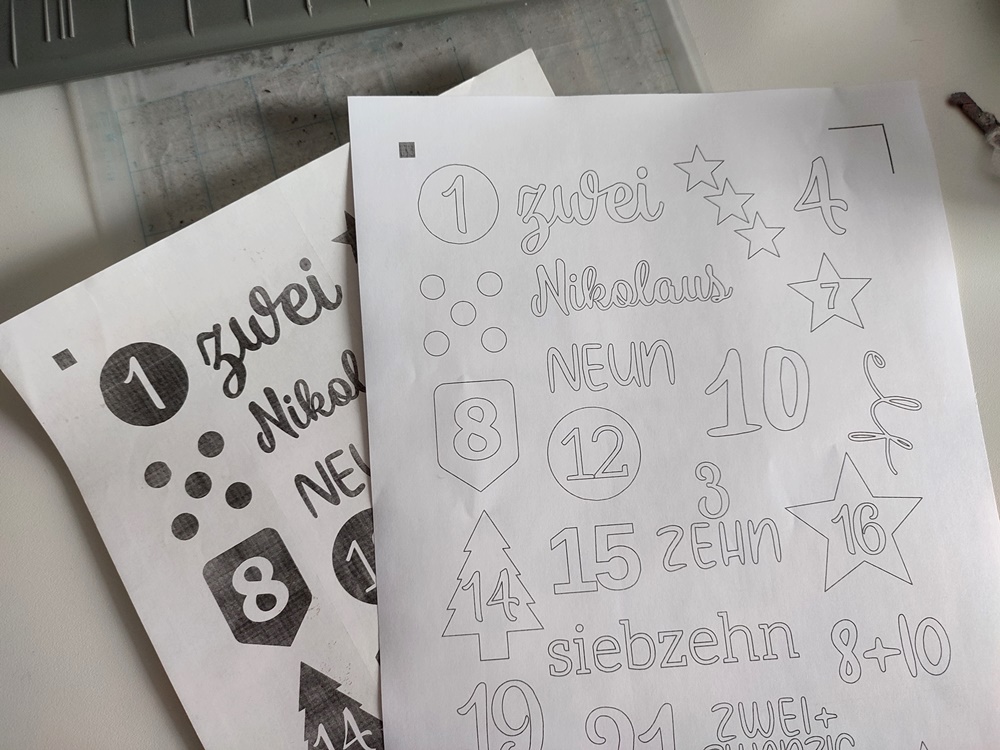 1 zwei 4
Nikolaus 7
NEUN 10 elf
8 12
3
15 ZEHN 16
14
siebzehn 8+10
19 21 ZWEI+
ZWANZIG
1 zwei
Nikol
NEU
8 1
14